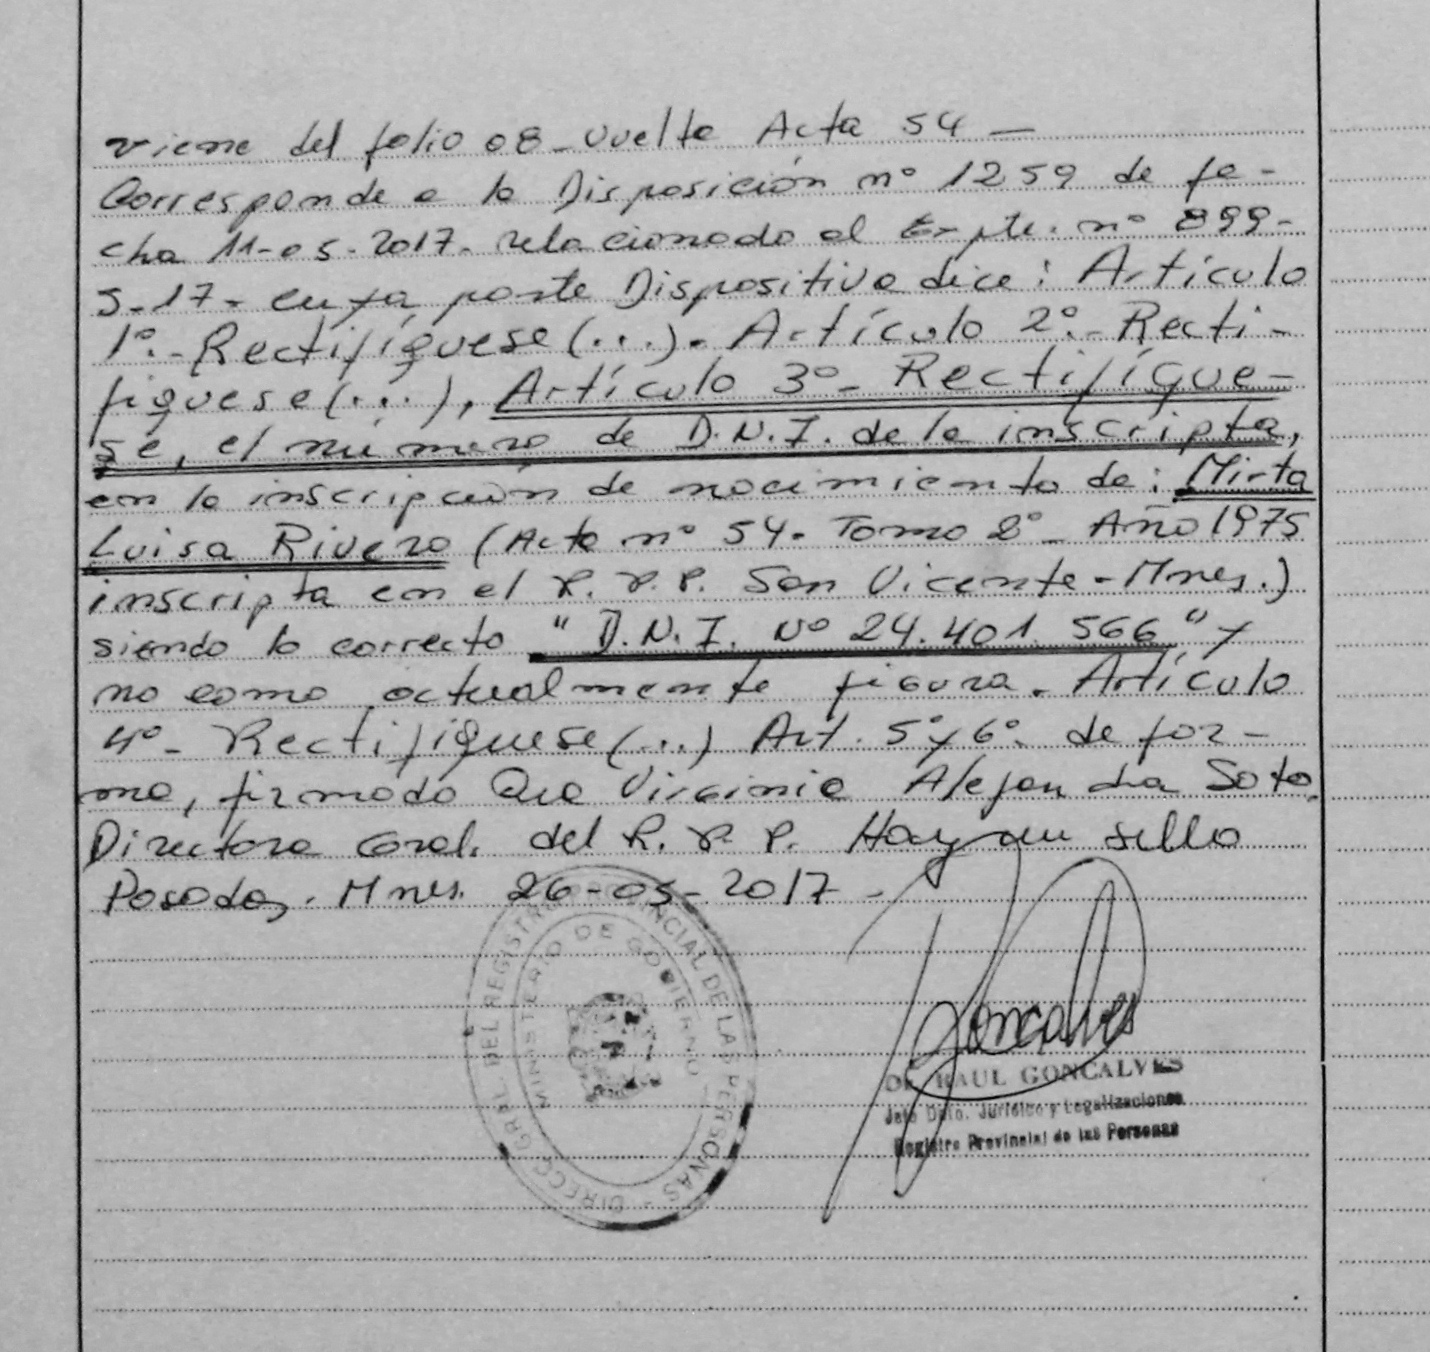 viene del folio 08 - vuelta Acta 54 —
Corresponde a la Disposición nº 1259 de fe-
cha 11-05-2017- relacionado al Expte. nº 899-
S-17- cuya parte Dispositiva dice: Artículo
1º.- Rectifíquese (...). Artículo 2º.- Recti-
fíquese (...), Artículo 3º- Rectifíque-
se, el número de D.N.I. de la inscripta,
en la inscripción de nacimiento de: Mirta
Luisa Rivero (Acta nº 54. Tomo 2º - Año 1975
inscripta en el R.P.P. San Vicente - Mnes.)
siendo lo correcto "D.N.I. Nº 24.401.566" y
no como actualmente figura. Artículo
4º- Rectifíquese (...) Art. 5º y 6º. de for-
ma, firmado Dra Virginia Alejandra Soto.
Directora Gral. del R.P.P. Hay un sello
Posadas, Mnes. 26-05-2017 -
DIRECC. GRAL. DEL REGISTRO PROVINCIAL DE LAS PERSONAS -
MINISTERIO DE GOBIERNO
Goncalves
Dr. RAUL GONCALVES
Jefe Dpto. Jurídico y Legalizaciones
Registro Provincial de las Personas